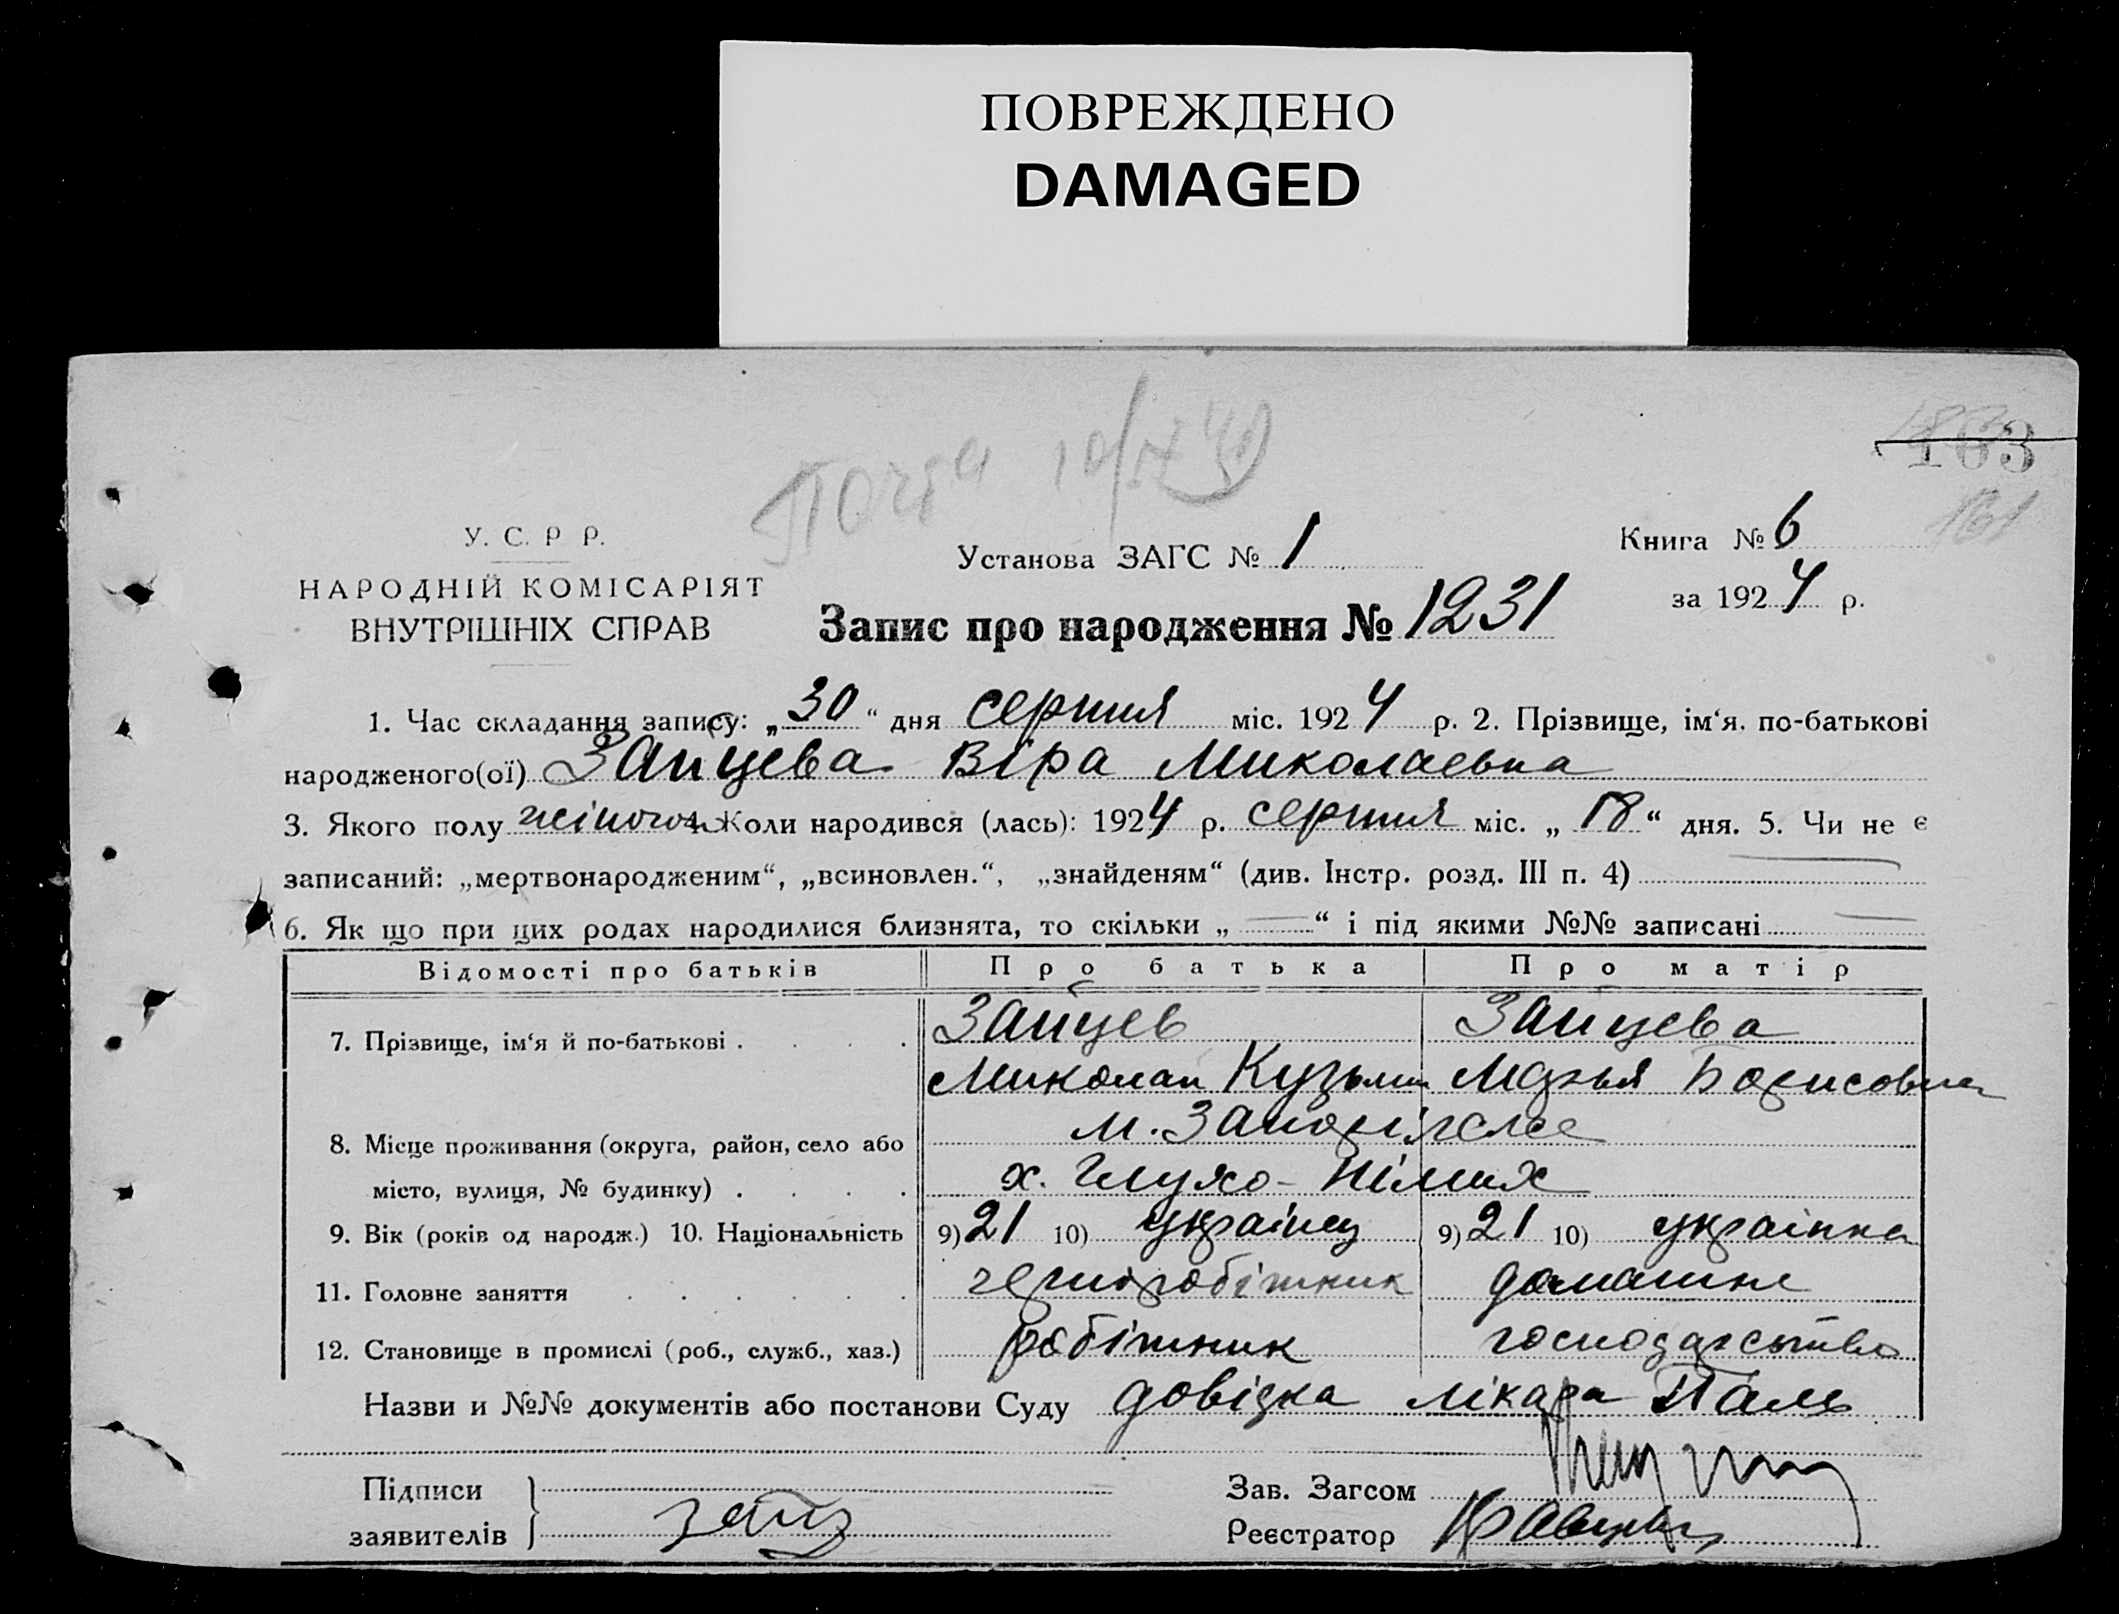 ПОВРЕЖДЕНО
DAMAGED
Почта 10/
163
161
У. С. Р Р.
НАРОДНІЙ КОМІСАРІЯТ
ВНУТРІШНІХ СПРАВ
Установа ЗАГС № 1
Книга № 6
за 1924 р.
Запис про народження № 1231
1. Час складання запису: „30“ дня серпня міс. 1924 р. 2. Прізвище, ім‘я, по-батькові
народженого(ої) Зайцева Віра Миколаевна
3. Якого полу жіночого 4. Коли народився (лась): 1924 р. серпня міс. „18“ дня. 5. Чи не є
записаний: „мертвонародженим“, „всиновлен.“, „знайденям“ (див. Інстр. розд. III п. 4)
6. Як що при цих родах народилися близнята, то скільки „ — “ і під якими №№ записані —
Відомості про батьків Про батька Про матір
7. Прізвище, ім‘я й по-батькові . Зайцев Зайцева
Миколай Кузьмич Марья Борисовна
8. Місце проживання (округа, район, село або м. Запоріжже
місто, вулиця, № будинку) . х. Глухо-Німих
9. Вік (років од народж.) 10. Національність 9) 21 10) українец 9) 21 10) українка
11. Головне заняття чорноробітник домашне
12. Становище в промислі (роб., служб., хаз.) робітник господарство
Назви и №№ документів або постанови Суду довідка лікаря Паль
Підписи
заявителів
Зав. Загсом
Реєстратор